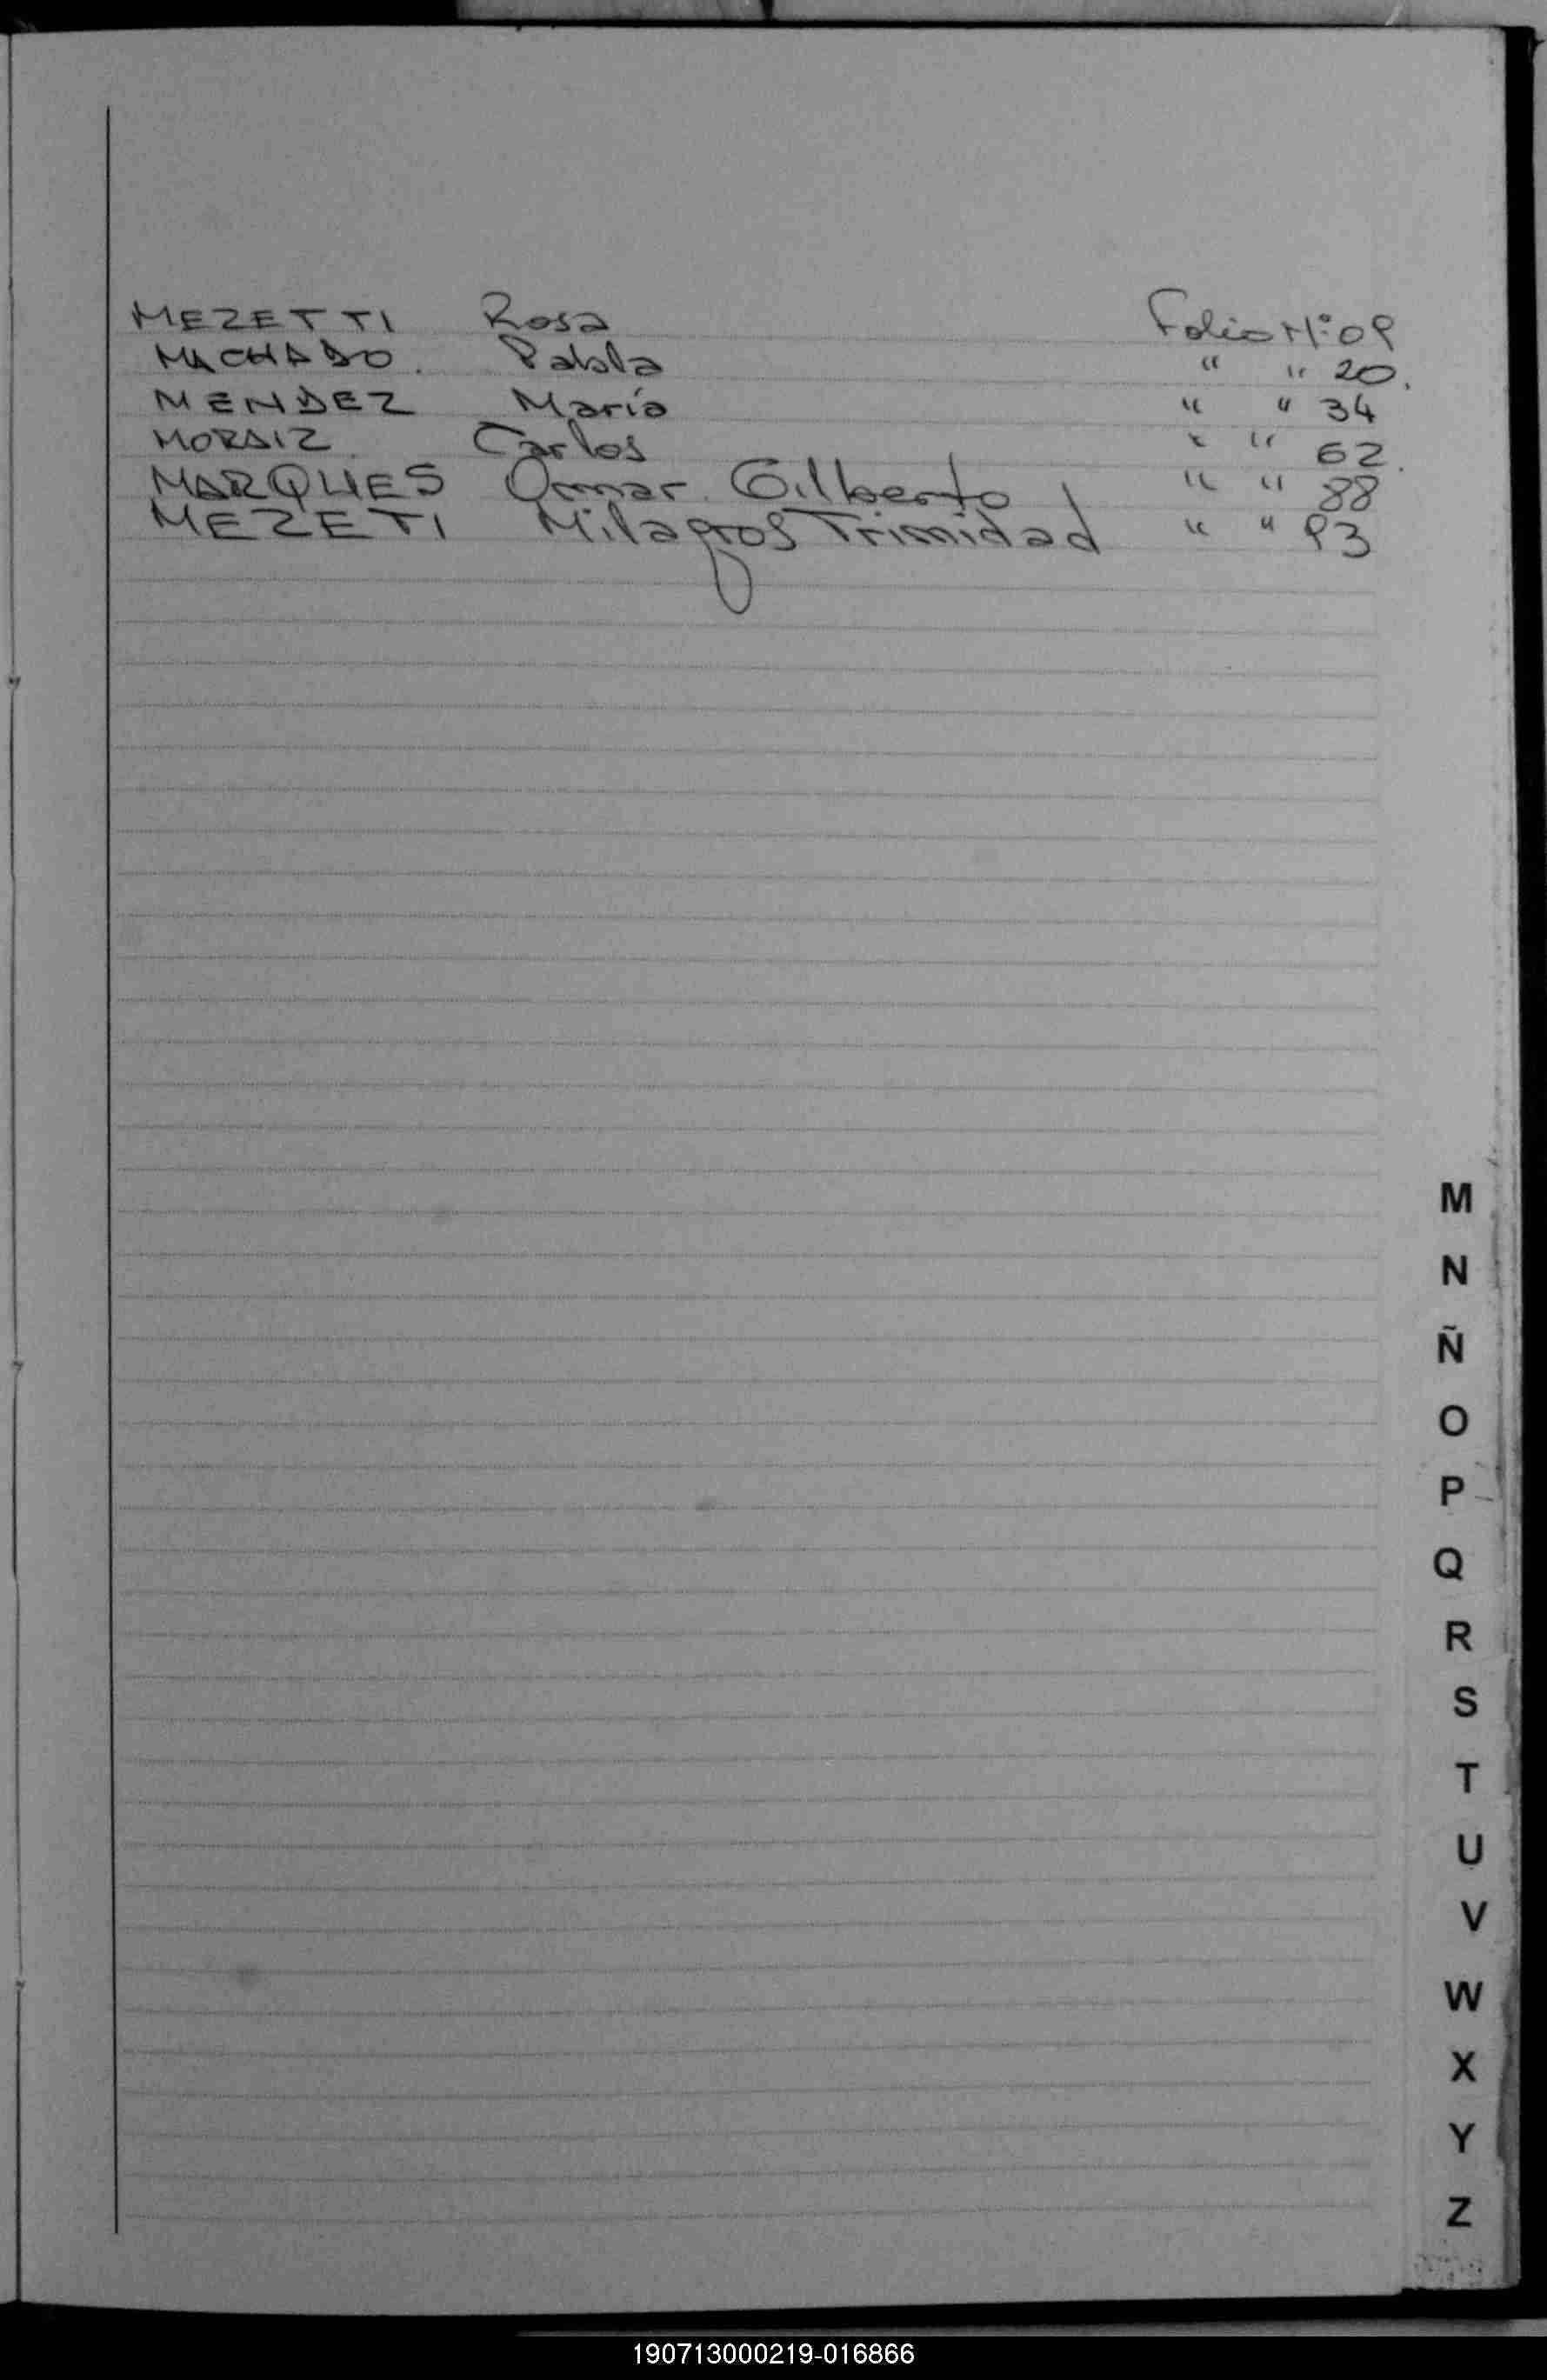 MEZETTI Rosa Folio N:09
MACHADO. Pabla " " 20.
MENDEZ María " " 34
MORAIZ. Carlos " " 62.
MARQUES Omar Gilberto " " 88
MEZETI Milagros Trinidad " " 93
M
N
Ñ
O
P
Q
R
S
T
U
V
W
X
Y
Z
190713000219-016866